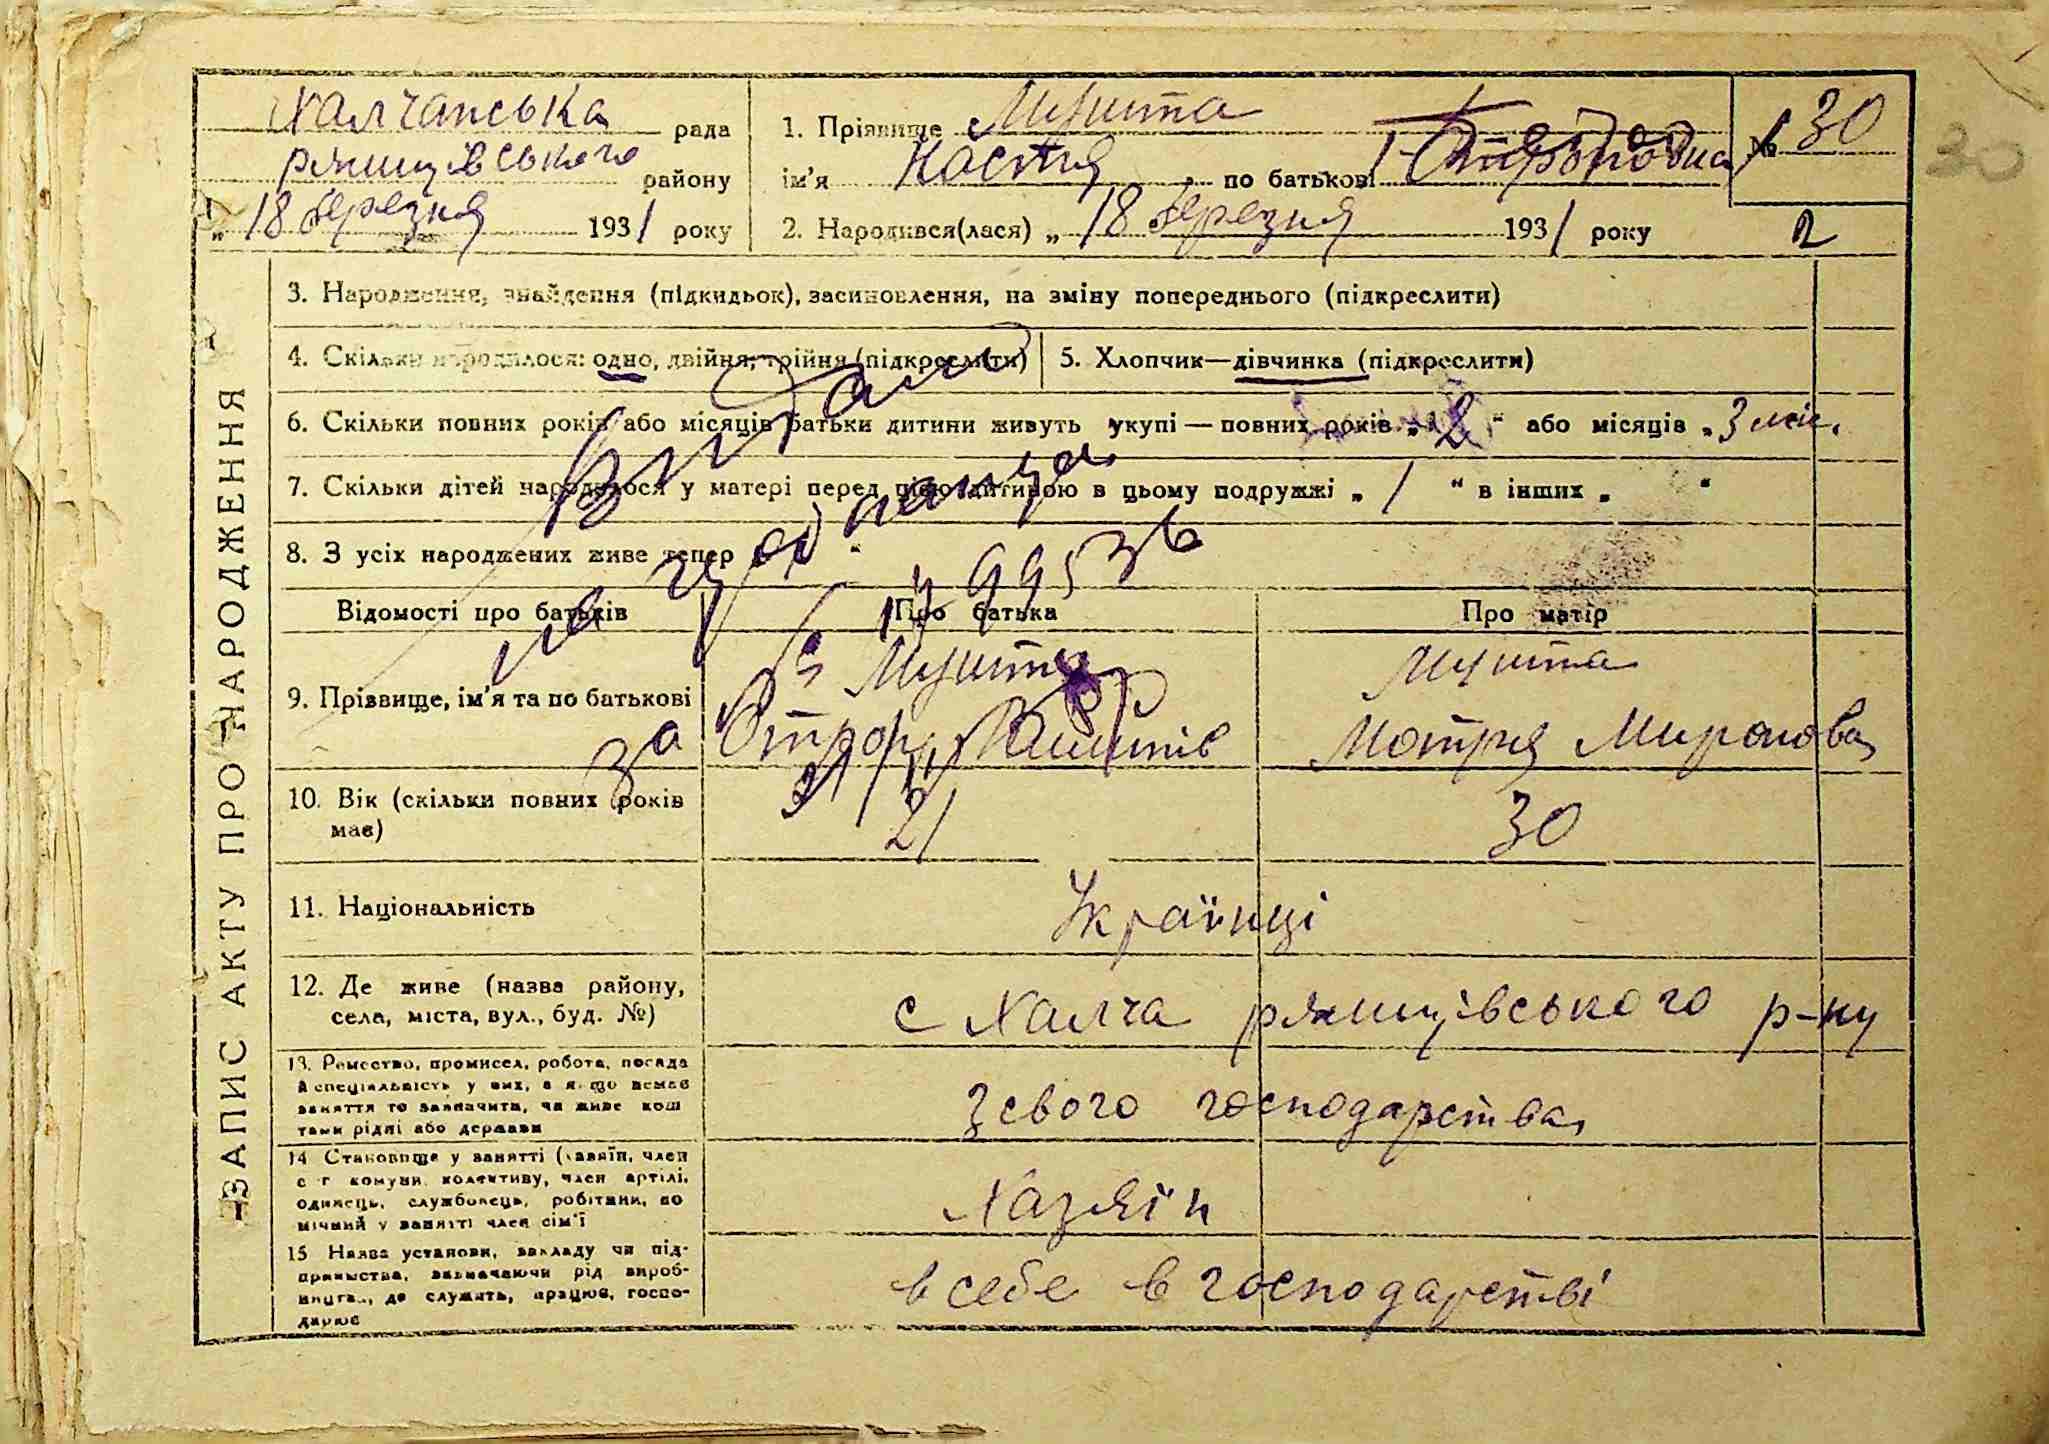 Халчанська рада
ржищівського району
„ 18 березня 1931 року
1. Прізвище Мушта
ім'я Настя, по батькові
2. Народився(лася) „ 18 березня 1931 року
№ 30
30
2
ЗАПИС АКТУ ПРО НАРОДЖЕННЯ
3. Народження, знайдення (підкидьок), засиновлення, на зміну попереднього (підкреслити)
4. Скільки народилося: одно, двійня, трійня (підкреслити)
5. Хлопчик—дівчинка (підкреслити)
6. Скільки повних років або місяців батьки дитини живуть укупі — повних років „ 2 “ або місяців „ 3 міс.
7. Скільки дітей народилося у матері перед цією дитиною в цьому подружжі „ 1 “ в інших „ “
8. З усіх народжених живе тепер „ “
Видано
за
Відомості про батьків
Про батька
Про матір
9. Прізвище, ім'я та по батькові
Мушта
Мушта
Мотря Миронова
10. Вік (скільки повних років
має)
21
30
11. Національність
Українці
12. Де живе (назва району,
села, міста, вул., буд. №)
с Халча ржищівського р-ну
13. Ремество, промисел, робота, посада
й спеціяльність у них, а якщо немає
заняття то зазначити, чи живе кош
тами рідні або держави
З свого господарства
14 Становище у занятті (хазяїн, член
с г комуни, колективу, член артілі,
одинець, службовець, робітник, по
мічний у занятті член сім'ї
Хазяїн
15 Назва установи, закладу чи під-
приємства, визначаючи рід вироб-
ництва, де служить, працює, госпо-
дарює
в себе в господарстві